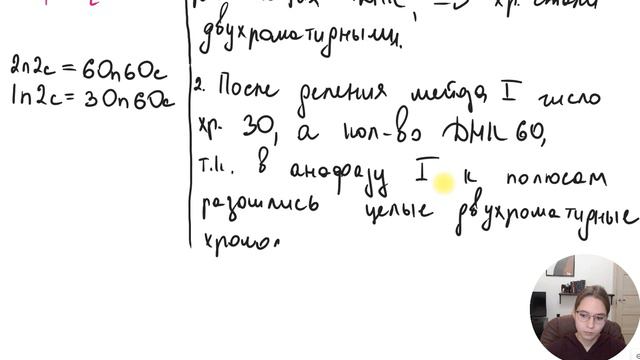 ДНК, => хр. стали
двухроматидными.
2n2c = 60n60c
1n2c = 30n60c
2. После деления мейоза I число
хр. 30, а кол-во ДНК 60,
т.к. в анафазу I к полюсам
разошлись целые двухроматидные
хромо